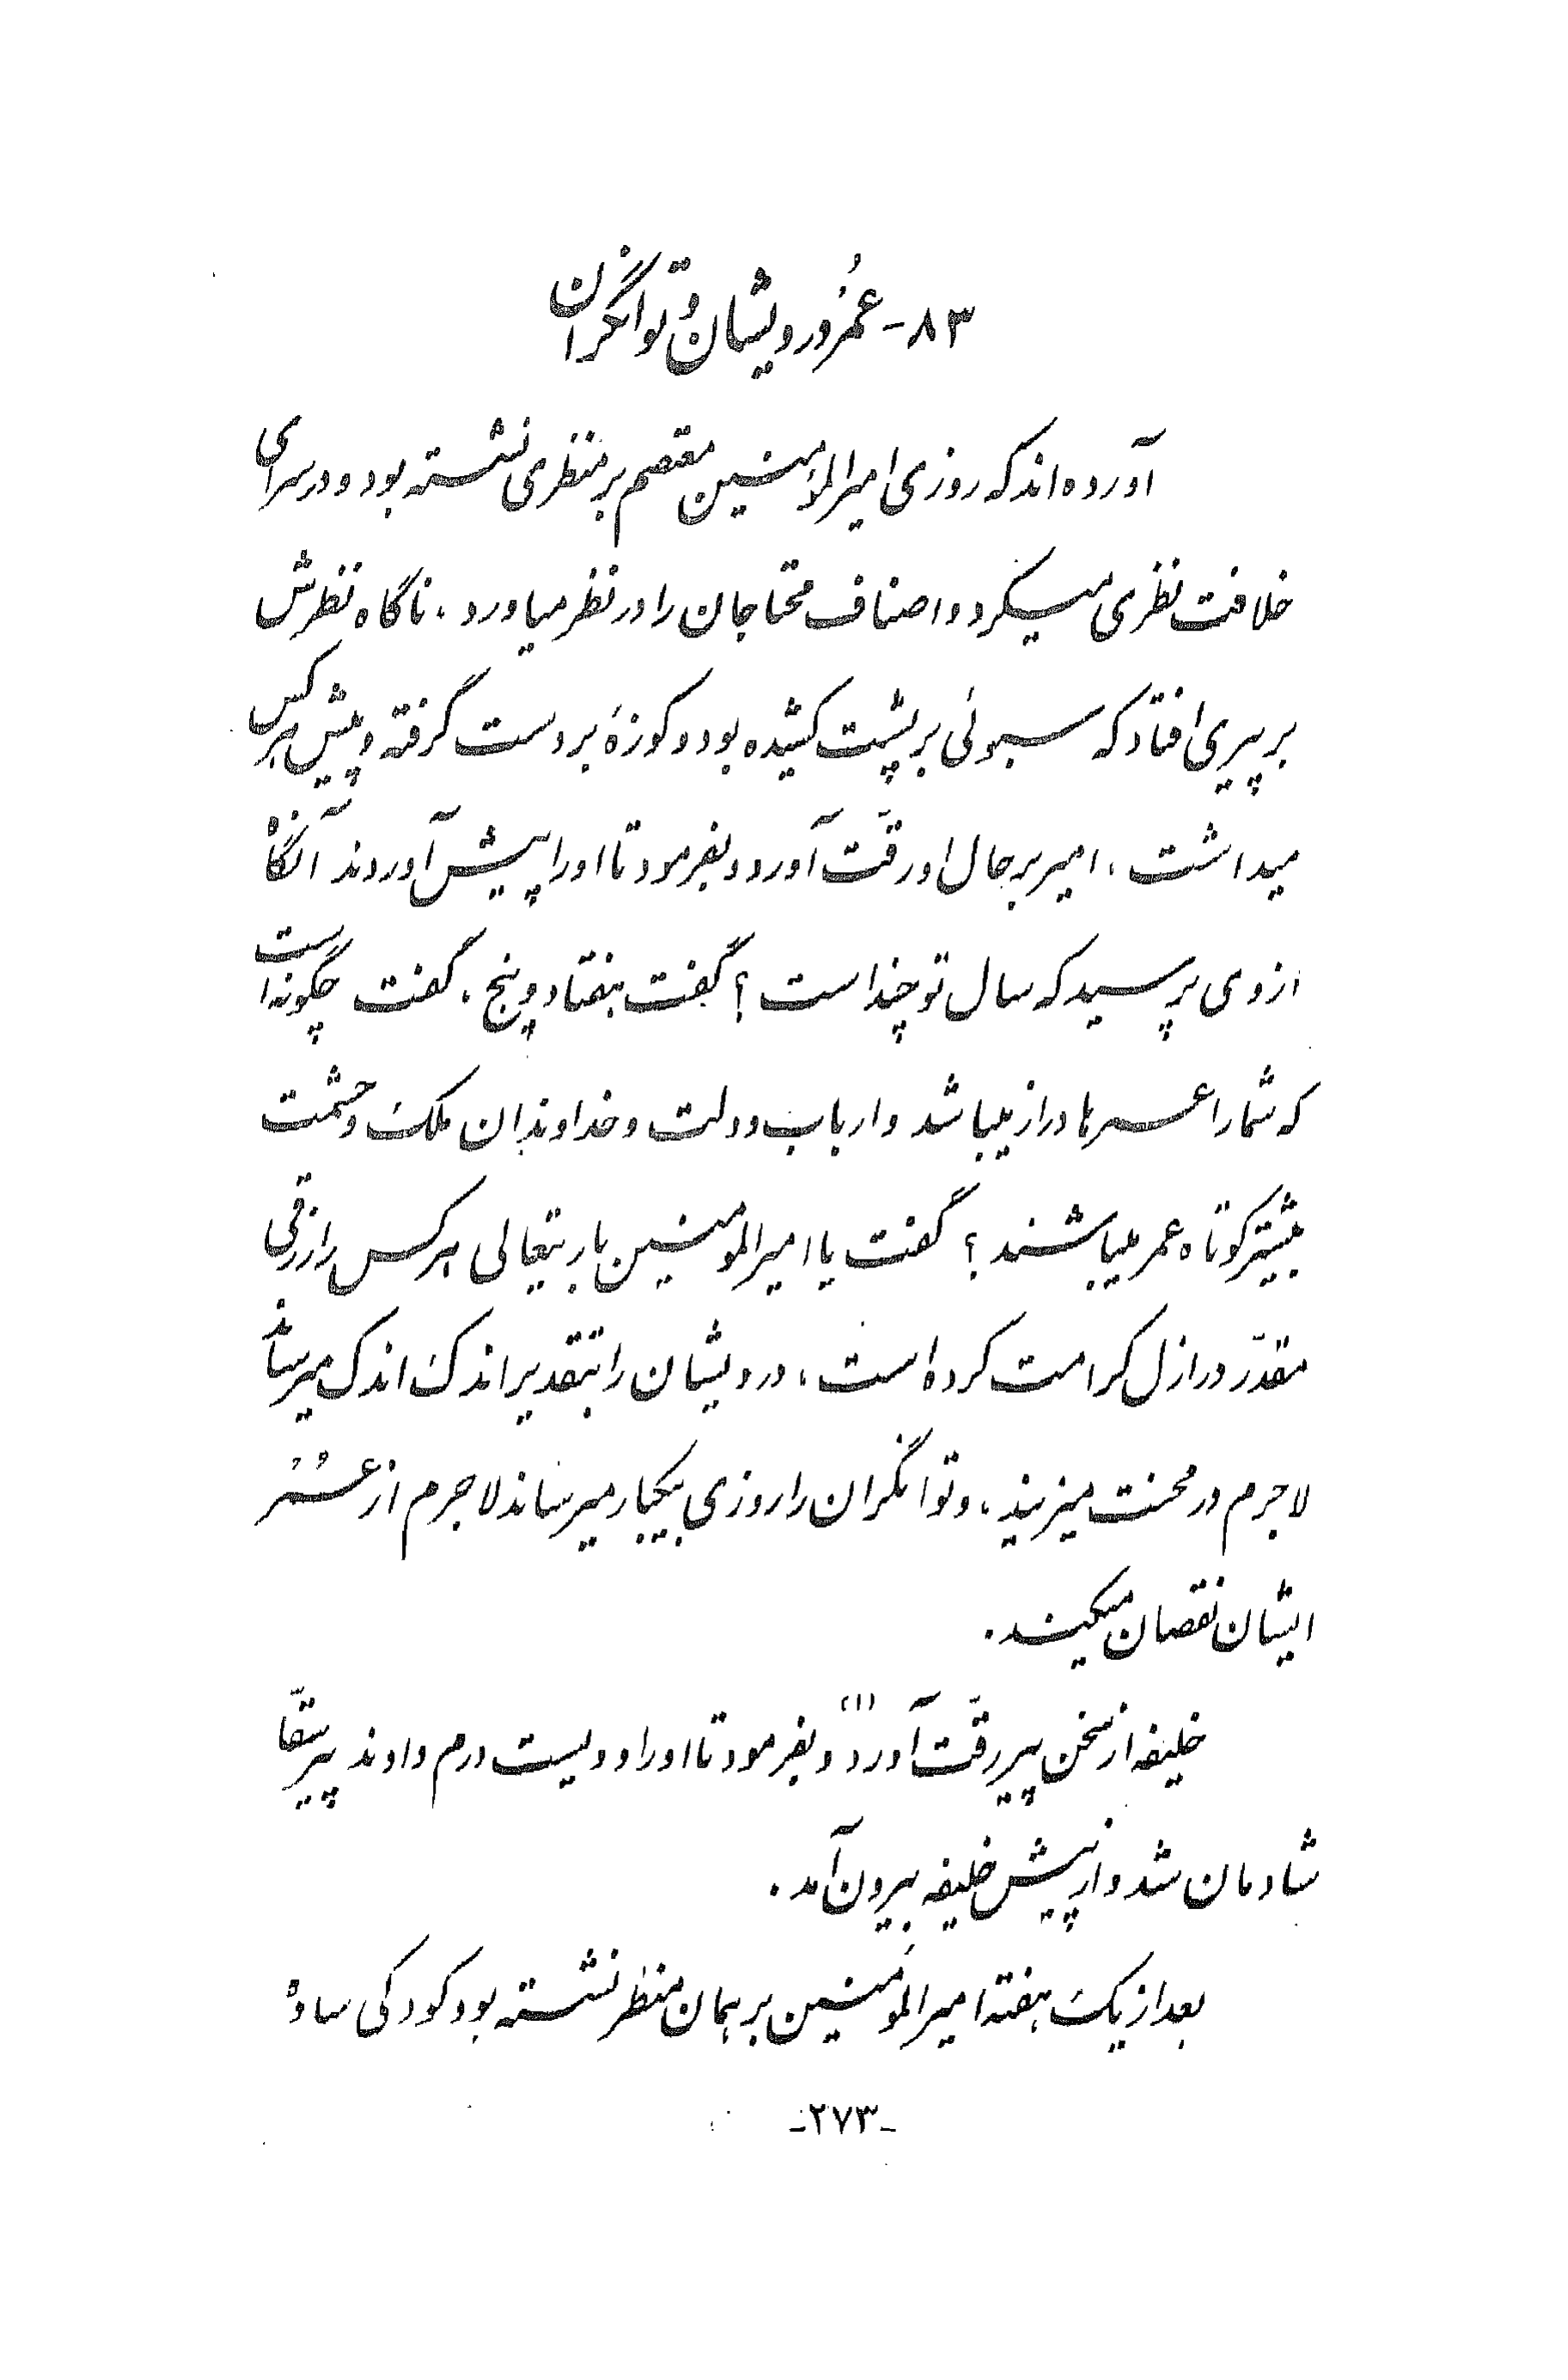 ۸۳- عُمُر درویشان و توانگران
آورده‌اند که روزی امیرالمؤمنین معتصم بر منظری نشسته بود و در سرای
خلافت نظری میکرد و اصناف محتاجان را در نظر میاورد، ناگاه نظرش
بر پیری افتاد که سبوئی بر پشت کشیده بود و کوزهٔ بر دست گرفته و پیش هر کس
میداشت، امیر بر حال او رقّت آورد و بفرمود تا او را پیش آوردند آنگاه
از وی پرسید که سال تو چند است؟ گفت هفتاد و پنج، گفت چگونه است
که شما را عمرها دراز میباشد و ارباب دولت و خداوندان ملک و حشمت
بیشتر کوتاه عمر میباشند؟ گفت یا امیرالمومنین باریتعالی هر کس را رزقی
مقدّر در ازل کرامت کرده است، درویشان را بتقدیر اندک اندک میرساند
لاجرم در محنت میزیند، و توانگران را روزی بیکبار میرساند لاجرم از عُمُر
ایشان نقصان میکند.
خلیفه از سخن پیر رقّت آورد(۱) و بفرمود تا او را دویست درم دادند پیر سقّا
شادمان شد و از پیش خلیفه بیرون آمد.
بعد از یک هفته امیرالمؤمنین بر همان منظر نشسته بود کودکی ساده
-۲۷۳-